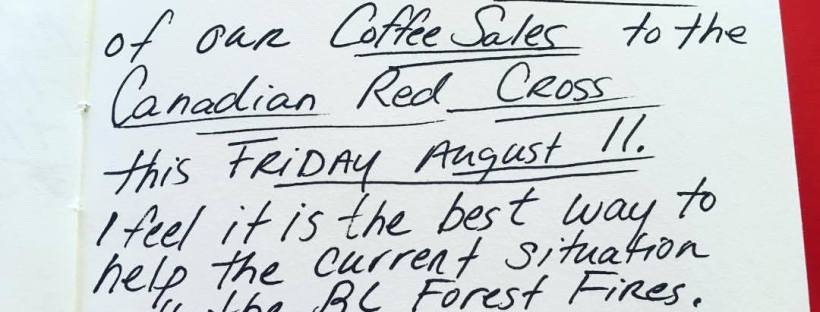 of our Coffee Sales to the
Canadian Red Cross
this FRiDAY August 11.
I feel it is the best way to
help the current situation
the BC Forest Fires.